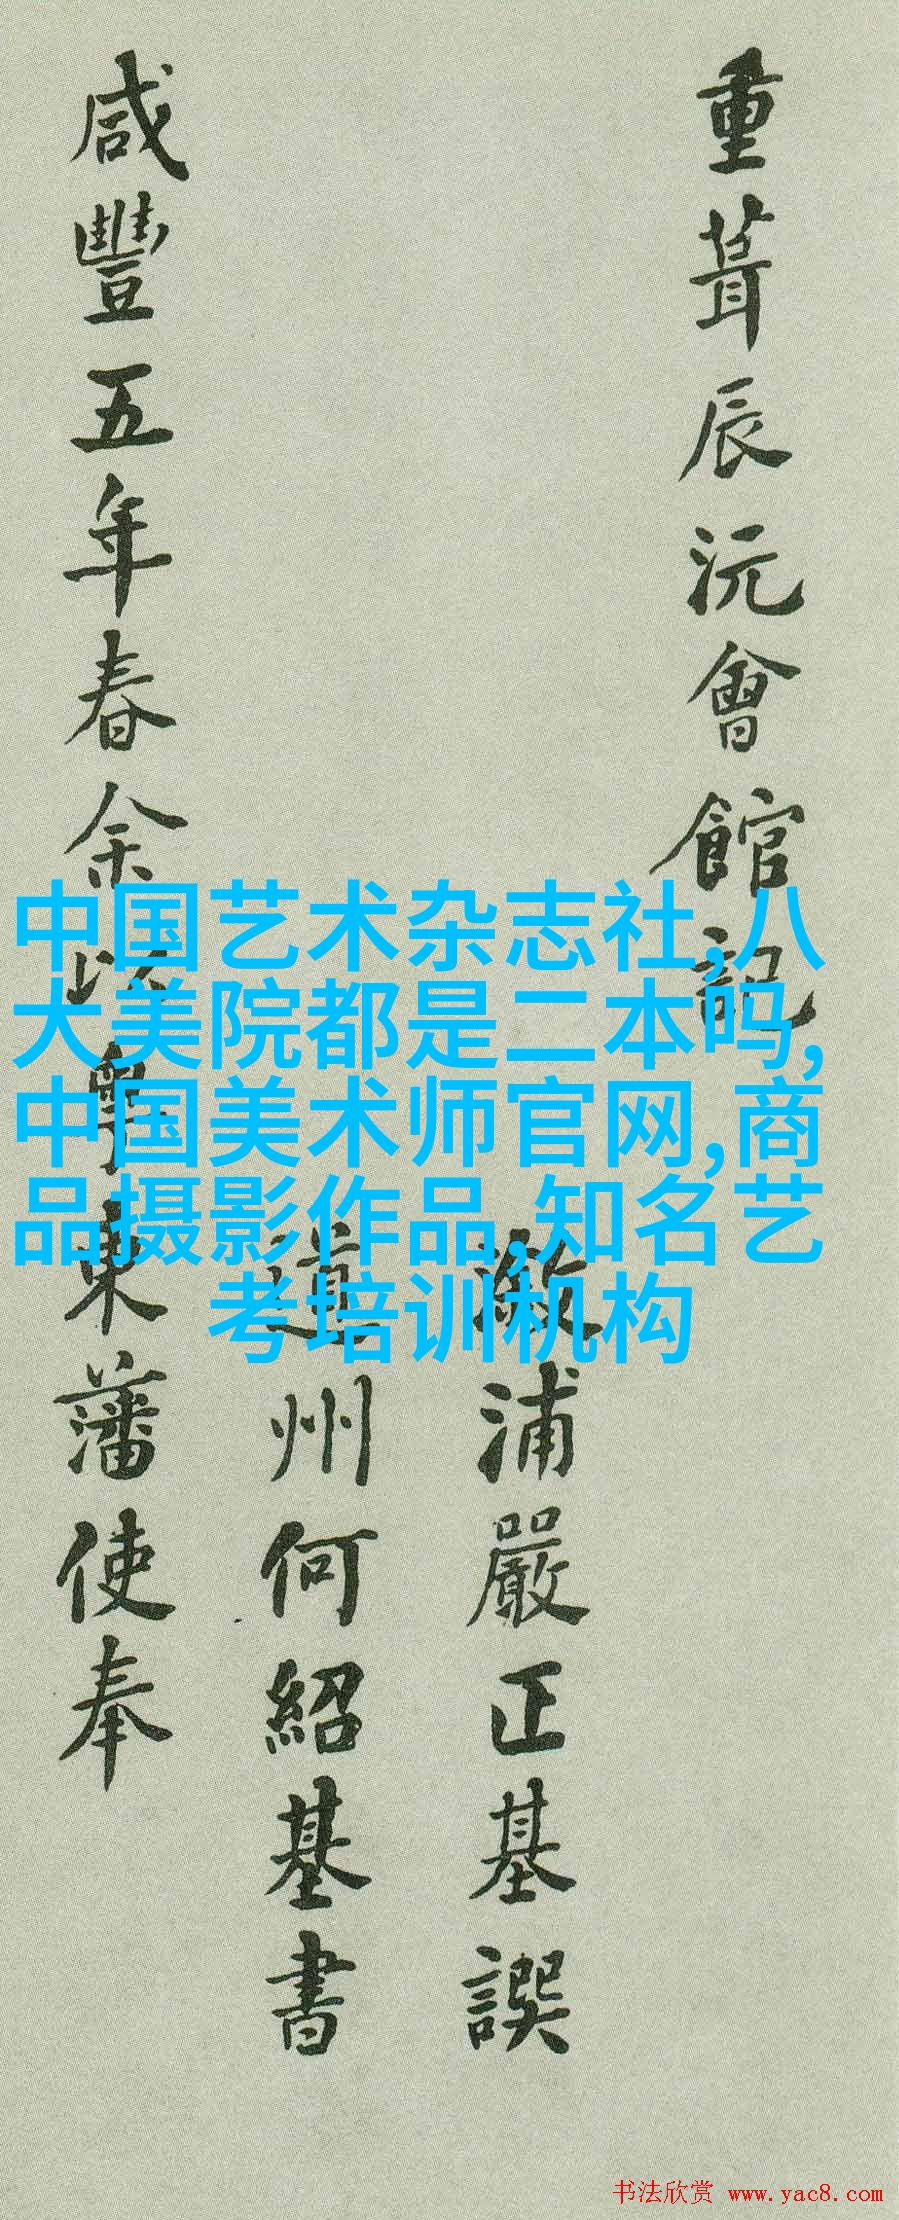 重葺辰沅會館記
漵浦嚴正基譔
道州何紹基書
咸豐五年春余以粤東藩使奉
中国艺术杂志社,八
大美院都是二本吗,
中国美术师官网,商
品摄影作品,知名艺
考培训机构
书法欣赏 www.yac8.com